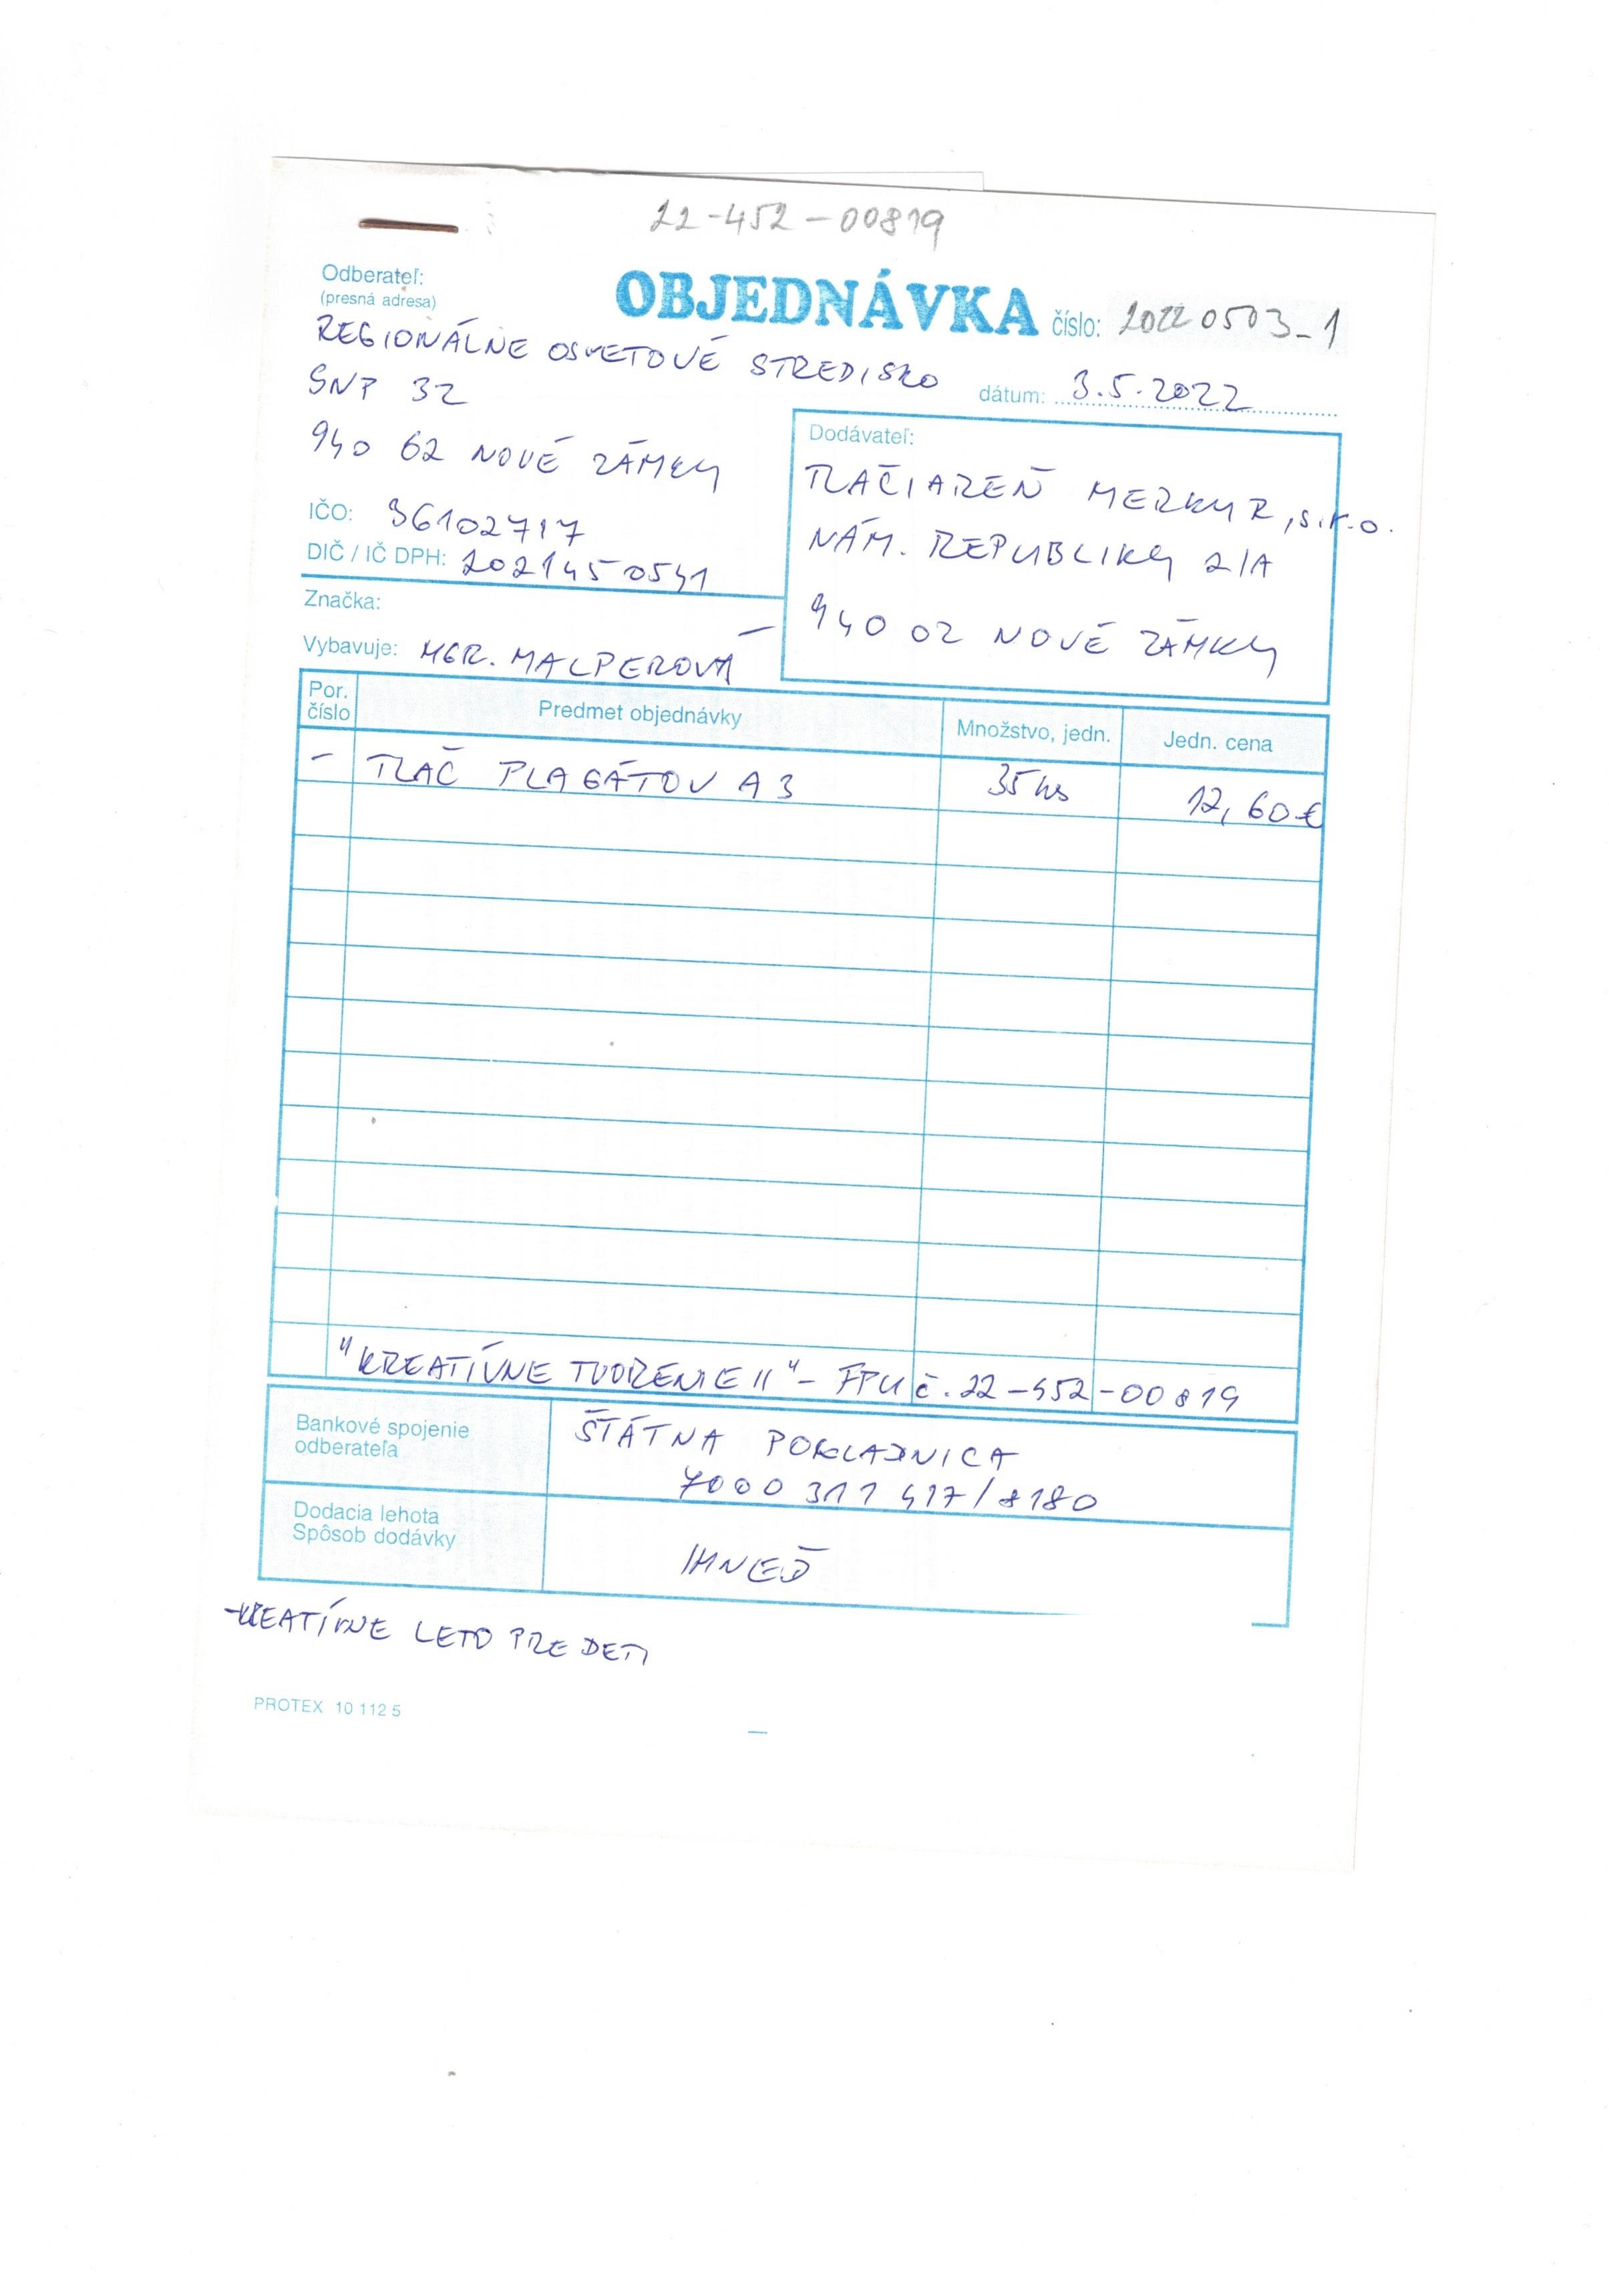 22-452-00819
Odberateľ:
(presná adresa)
OBJEDNÁVKA číslo: 20220503_1
REGIONÁLNE OSVETOVÉ STREDISKO
SNP 32
dátum: 3.5.2022
940 62 NOVÉ ZÁMKY
IČO: 36102717
DIČ / IČ DPH: 2021450541
Značka:
Vybavuje: MGR. MALPEROVÁ
Dodávateľ:
TLAČIAREŇ MERKUR, s.r.o.
NÁM. REPUBLIKY 2/A
940 02 NOVÉ ZÁMKY
Por. číslo Predmet objednávky Množstvo, jedn. Jedn. cena
- TLAČ PLAGÁTOV A3 35 ks 12,60 €
"KREATÍVNE TVORENIE II" - FPU č. 22-452-00819
Bankové spojenie
odberateľa
ŠTÁTNA POKLADNICA
7000 311 417/8180
Dodacia lehota
Spôsob dodávky
IHNEĎ
-KREATÍVNE LETO PRE DETI
PROTEX 10 112 5